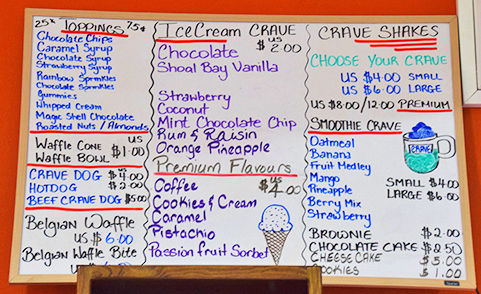 25¢ TOPPINGS 75¢
Chocolate Chips
Caramel Syrup
Chocolate Syrup
Strawberry Syrup
Rainbow Sprinkles
Chocolate Sprinkles
Gummies
Whipped Cream
Magic Shell Chocolate
Roasted Nuts / Almonds
Waffle Cone US
Waffle Bowl $1.00
CRAVE DOG US $4.00
HOTDOG $2.00
BEEF CRAVE DOG $5.00
Belgian Waffle
US $6.00
Belgian Waffle Bite
US
IceCream CRAVE
Chocolate US $2.00
Shoal Bay Vanilla
Strawberry
Coconut
Mint Chocolate Chip
Rum & Raisin
Orange Pineapple
Premium Flavours
Coffee US $4.00
Cookies & Cream
Caramel
Pistachio
Passion fruit Sorbet
CRAVE SHAKES
CHOOSE YOUR CRAVE
US $4.00 SMALL
US $6.00 LARGE
US $8.00/12.00 PREMIUM
SMOOTHIE CRAVE
Oatmeal
Banana
Fruit Medley
Mango
Pineapple
Berry Mix
Strawberry
CRAVE
US
SMALL $4.00
LARGE $6.00
BROWNIE $2.00
CHOCOLATE CAKE $2.50
CHEESE CAKE $5.00
COOKIES $1.00